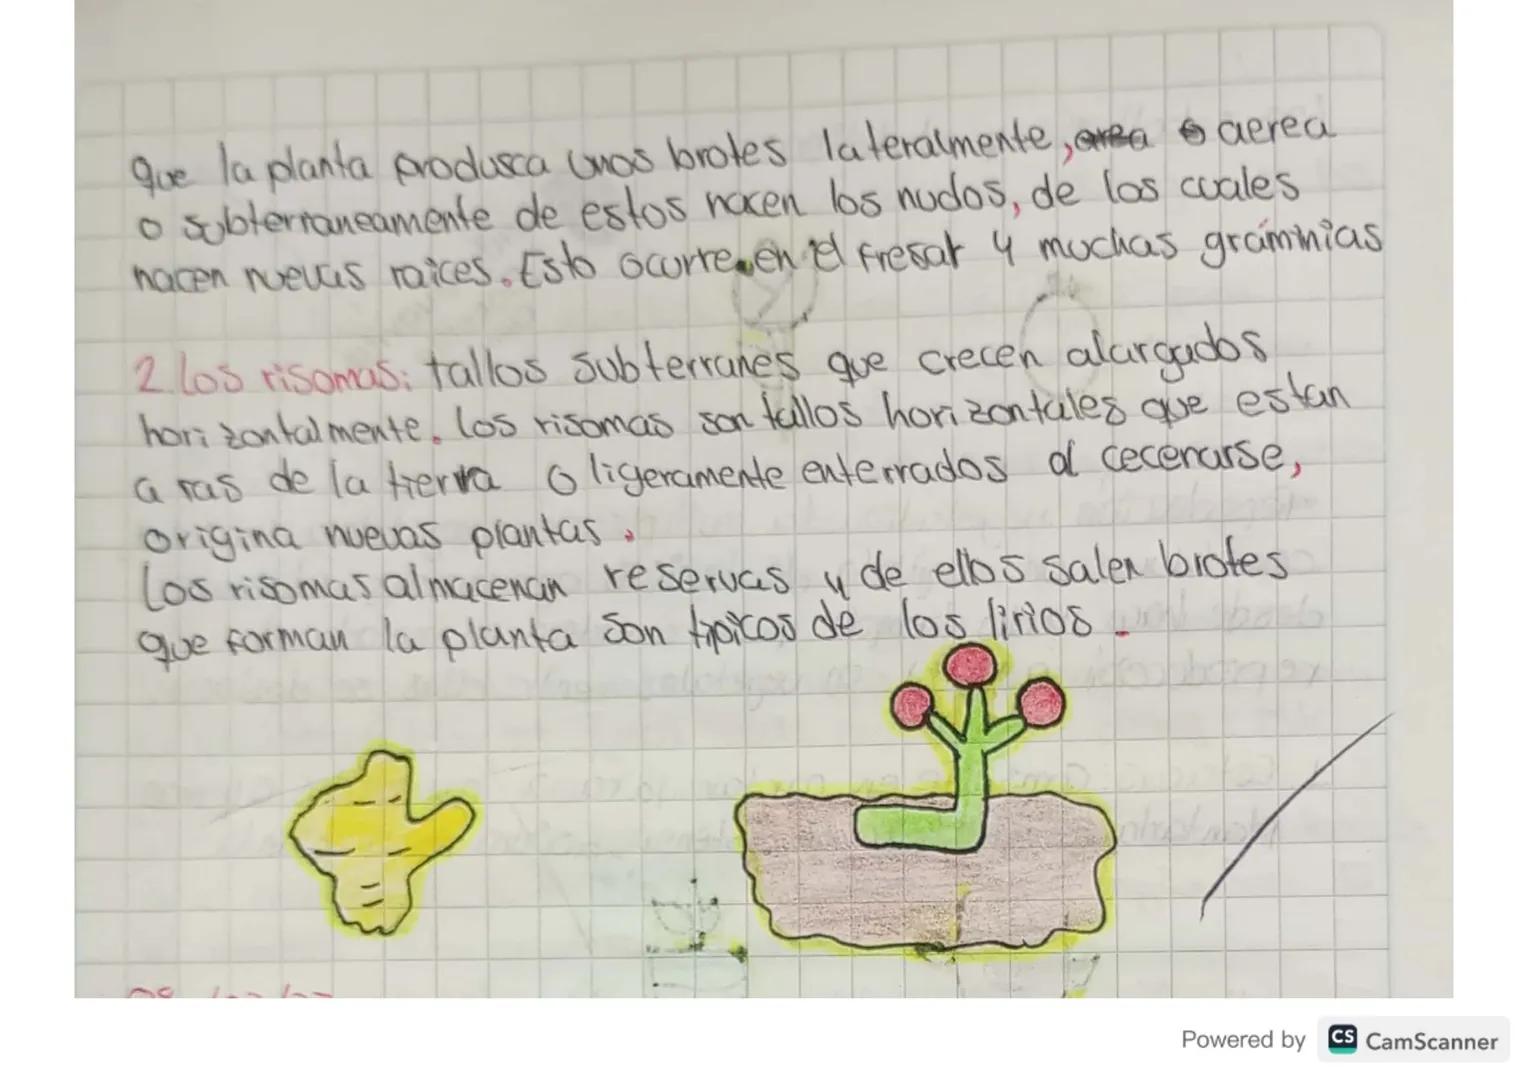 que la planta produsca unos brotes lateralmente, aerea
o subterraneamente de estos nacen los nudos, de los cuales
nacen nuevas raices. Esto ocurre en el fresar y muchas gramínias
2 los risomas: tallos subterranes que crecen alargados
horizontalmente. los risomas son tallos horizontales que estan
a ras de la tierra o ligeramente enterrados al cecerarse,
origina nuevas plantas.
Los risomas almacenan reservas y de ellos salen brotes
que forman la planta son tipicos de los lirios.
Powered by CS CamScanner